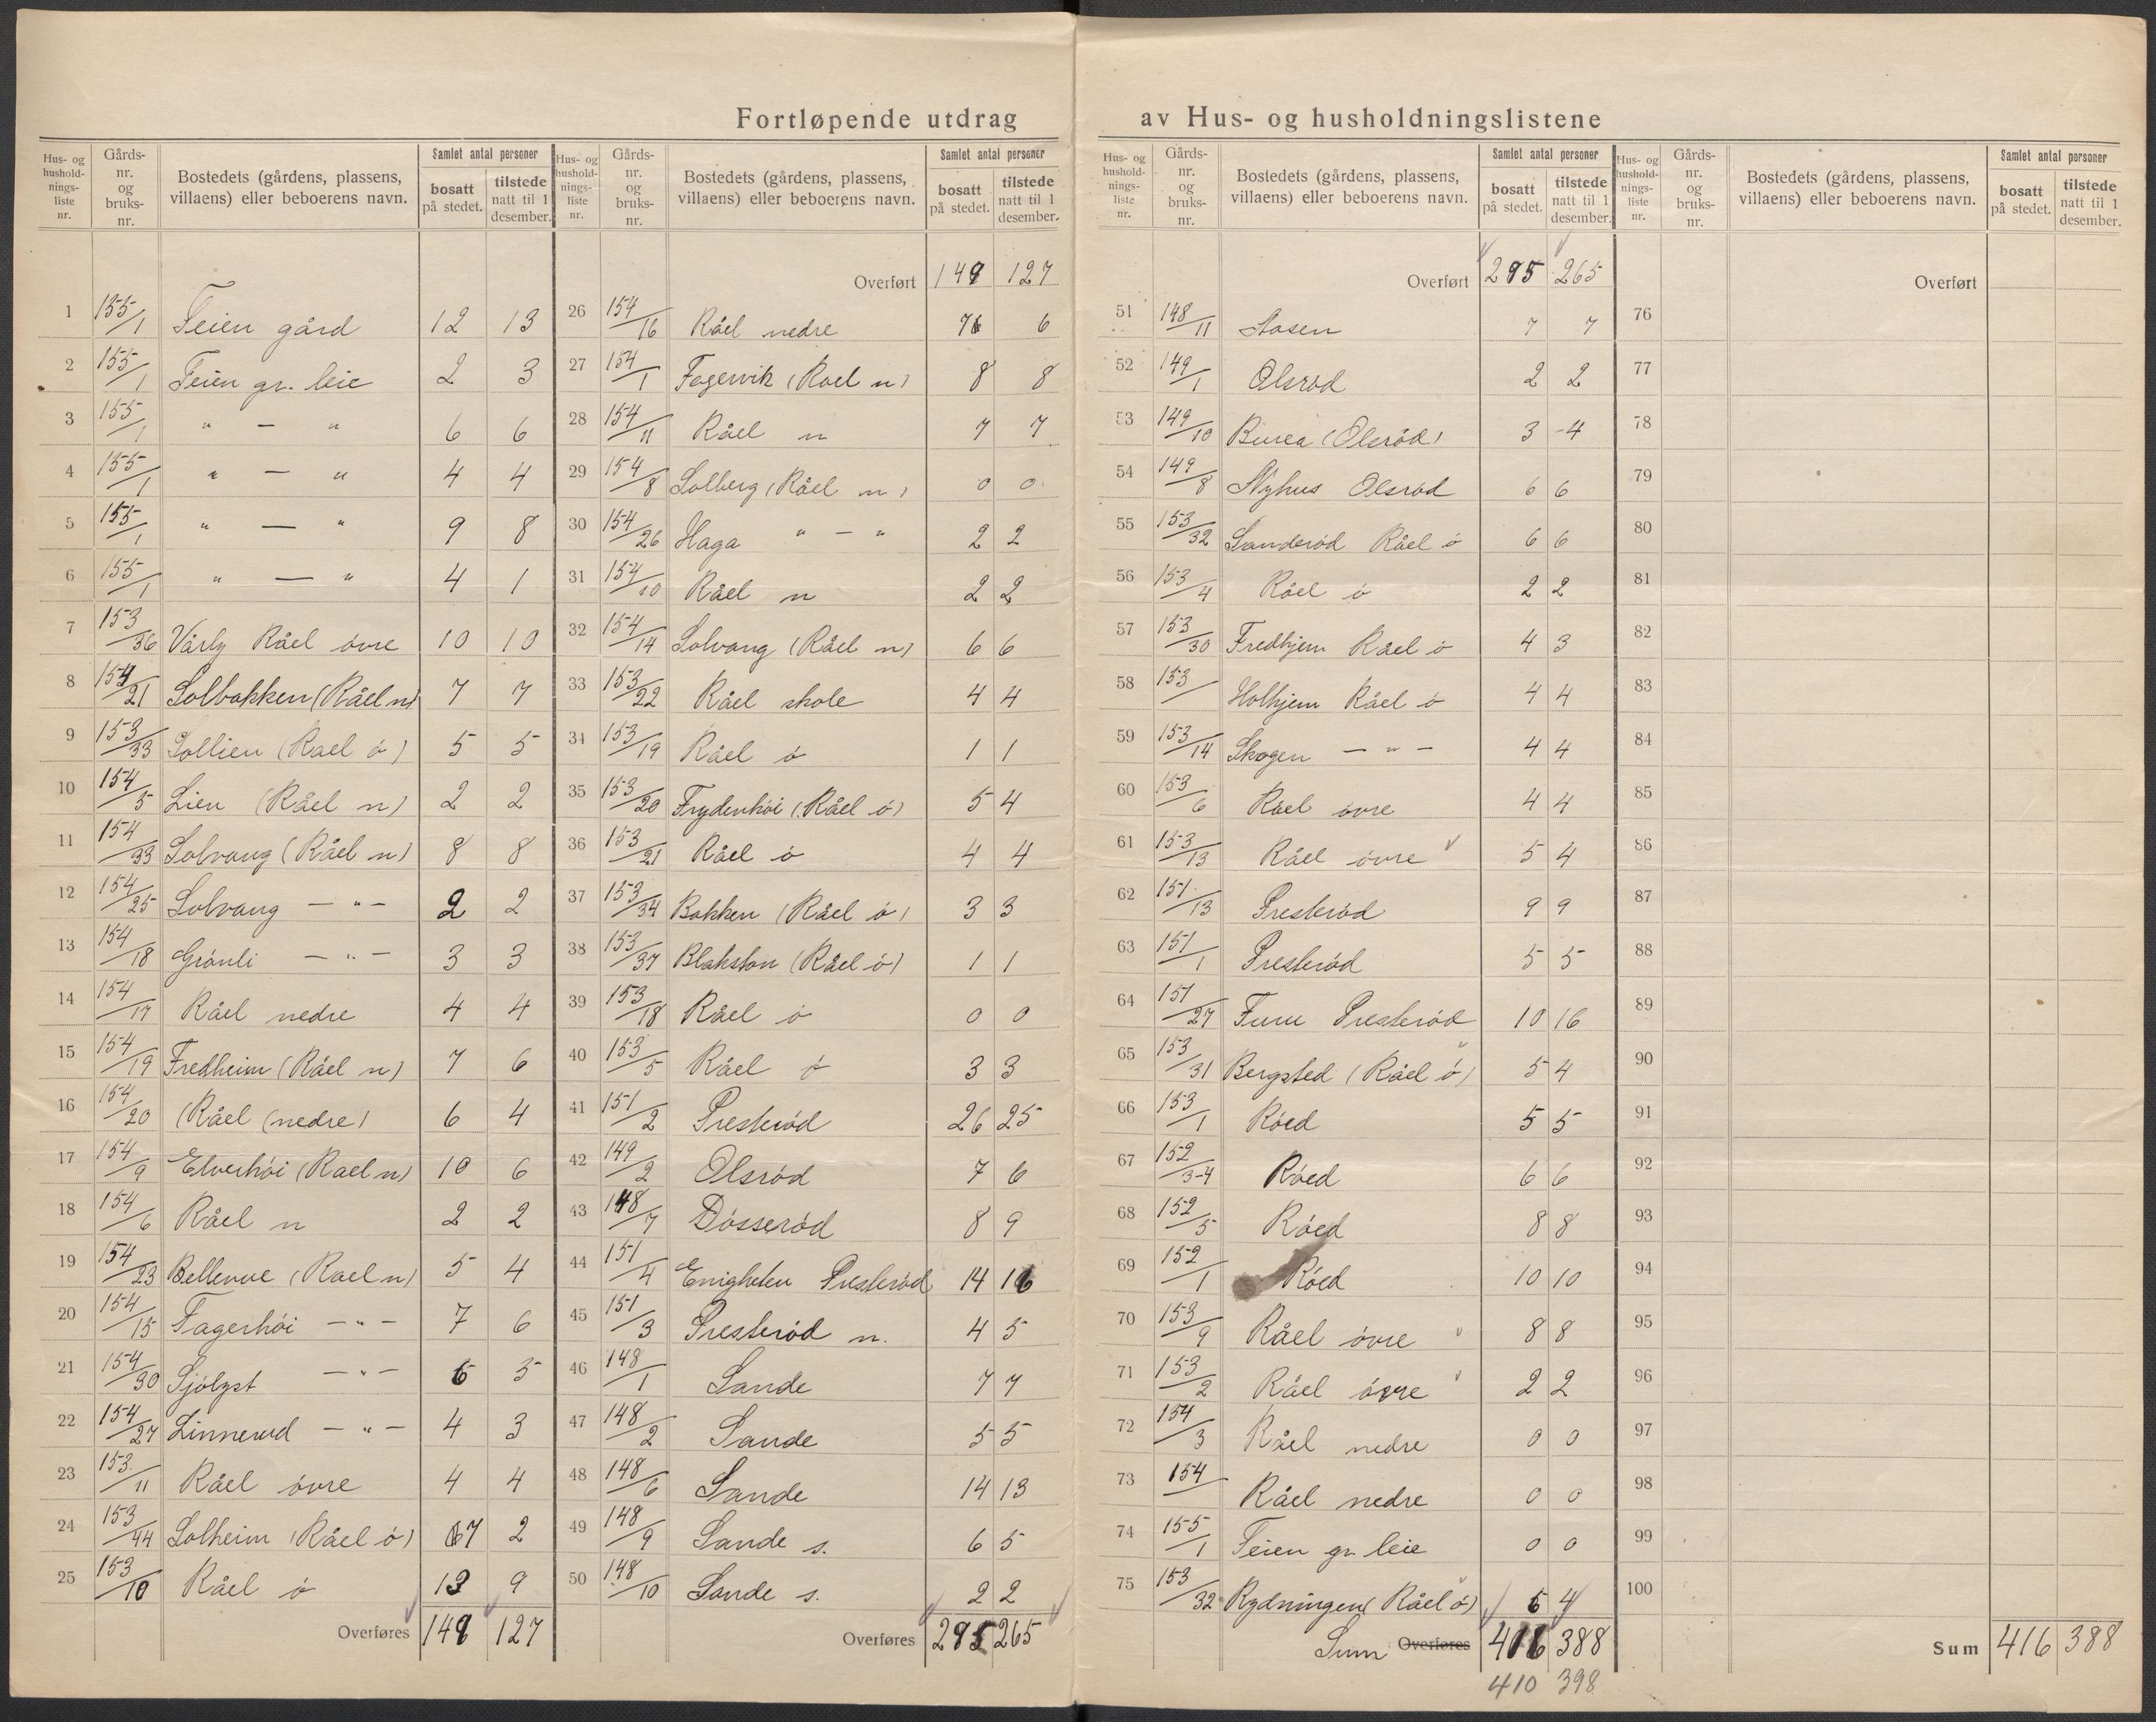 Fortløpende utdrag av Hus- og husholdningslistene
Hus- og husholdnings-liste nr. Gårds-nr. og bruks-nr. Bostedets (gårdens, plassens, villaens) eller beboerens navn. Samlet antal personer bosatt på stedet. tilstede natt til 1 desember.
1 155/1 Teien gård 12 13
2 155/1 Teien gr. leie 2 3
3 155/1 " — " 6 6
4 155/1 " — " 4 4
5 155/1 " — " 9 8
6 155/1 " — " 4 1
7 153/36 Vårly Råel øvre 10 10
8 154/21 Solbakken (Råel n) 7 7
9 153/33 Sollien (Rael ø) 5 5
10 154/5 Lien (Råel n) 2 2
11 154/33 Solvang (Råel n) 8 8
12 154/25 Solvang — " — 2 2
13 154/18 Grønli — " — 3 3
14 154/17 Råel nedre 4 4
15 154/19 Fredheim (Råel n) 7 6
16 154/20 (Råel (nedre) 6 4
17 154/9 Elverhøi (Rael n) 10 6
18 154/6 Råel n 2 2
19 154/23 Bellevue (Rael n) 5 4
20 154/15 Fagerhøi — " — 7 6
21 154/30 Sjølyst — " — 6 5
22 154/27 Linnerud — " — 4 3
23 153/11 Råel øvre 4 4
24 153/44 Solheim (Råel ø) 7 2
25 153/10 Råel ø 13 9
Overføres 149 127
Hus- og husholdnings-liste nr. Gårds-nr. og bruks-nr. Bostedets (gårdens, plassens, villaens) eller beboerens navn. Samlet antal personer bosatt på stedet. tilstede natt til 1 desember.
Overført 149 127
26 154/16 Råel nedre 7 6
27 154/1 Fagervik (Rael n) 8 8
28 154/11 Råel n 7 7
29 154/8 Solberg (Råel n) 0 0
30 154/26 Haga " — " 2 2
31 154/10 Råel n 2 2
32 154/14 Solvang (Råel n) 6 6
33 153/22 Råel skole 4 4
34 153/19 Råel ø 1 1
35 153/20 Frydenhøi (Råel ø) 5 4
36 153/21 Råel ø 4 4
37 153/34 Bakken (Råel ø) 3 3
38 153/37 Blakston (Råel ø) 1 1
39 153/18 Råel ø 0 0
40 153/5 Råel ø 3 3
41 151/2 Presterød 26 25
42 149/2 Olsrød 7 6
43 148/7 Døsserød 8 9
44 151/4 Enigheten Presterød 14 16
45 151/3 Presterød n. 4 5
46 148/1 Sande 7 7
47 148/2 Sande 5 5
48 148/6 Sande 14 13
49 148/9 Sande s. 6 5
50 148/10 Sande s. 2 2
Overføres 295 265
Hus- og husholdnings-liste nr. Gårds-nr. og bruks-nr. Bostedets (gårdens, plassens, villaens) eller beboerens navn. Samlet antal personer bosatt på stedet. tilstede natt til 1 desember.
Overført 295 265
51 148/11 Aasen 7 7
52 149/1 Olsrød 2 2
53 149/10 (Olsrød) 3 4
54 149/8 Nyhus Olsrød 6 6
55 153/32 Sanderød Råel ø 6 6
56 153/4 Råel ø 2 2
57 153/30 Fredhjem Råel ø 4 3
58 153/ Holhjem Råel ø 4 4
59 153/14 Skogen — " — 4 4
60 153/6 Råel øvre 4 4
61 153/13 Råel øvre 5 4
62 151/13 Presterød 9 9
63 151/1 Presterød 5 5
64 151/27 Furu Presterød 10 16
65 153/31 Bergsted (Råel ø) 5 4
66 153/1 Røed 5 5
67 152/3-4 Røed 6 6
68 152/5 Røed 8 8
69 152/1 Røed 10 10
70 153/9 Råel øvre 8 8
71 153/2 Råel øvre 2 2
72 154/3 Råel nedre 0 0
73 154/ Råel nedre 0 0
74 155/1 Teien gr. leie 0 0
75 153/32 Rydningen (Råel ø) 6 4
Sum Overføres 416 388
410 398
Hus- og husholdnings-liste nr. Gårds-nr. og bruks-nr. Bostedets (gårdens, plassens, villaens) eller beboerens navn. Samlet antal personer bosatt på stedet. tilstede natt til 1 desember.
Overført
76
77
78
79
80
81
82
83
84
85
86
87
88
89
90
91
92
93
94
95
96
97
98
99
100
Sum 416 388